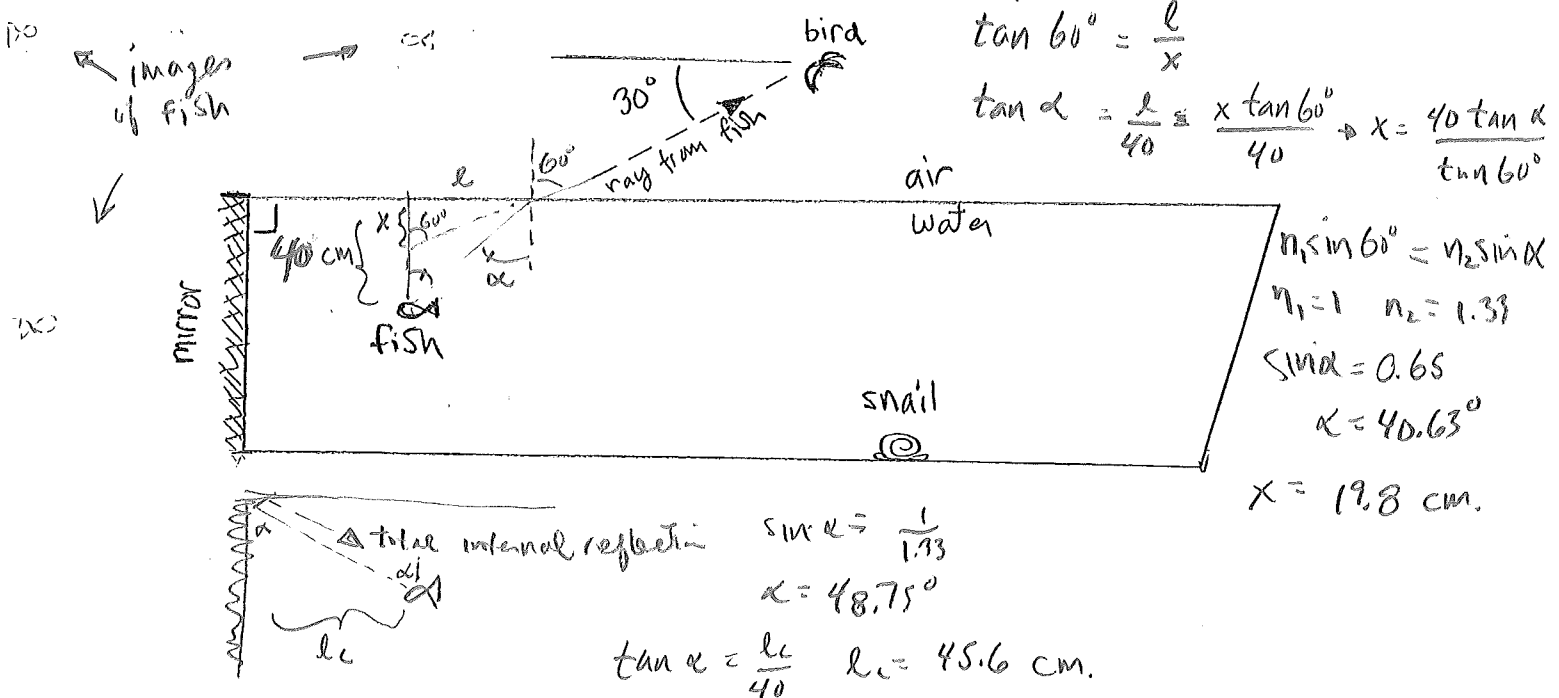 images
of fish
bird
30°
60°
ray from fish
l
air
water
x
60°
40 cm
α
fish
mirror
snail
tan 60° = l/x
tan α = l/40 = x tan 60°/40 → x = 40 tan α/tan 60°
n₁ sin 60° = n₂ sin α
n₁ = 1 n₂ = 1.33
sin α = 0.65
α = 40.63°
x = 19.8 cm.
α
total internal reflection
α
l꜀
sin α = 1/1.33
α = 48.75°
tan α = l꜀/40 l꜀ = 45.6 cm.